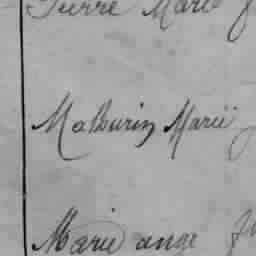 Pierre Marie
Mathurin Marie
Marie ange